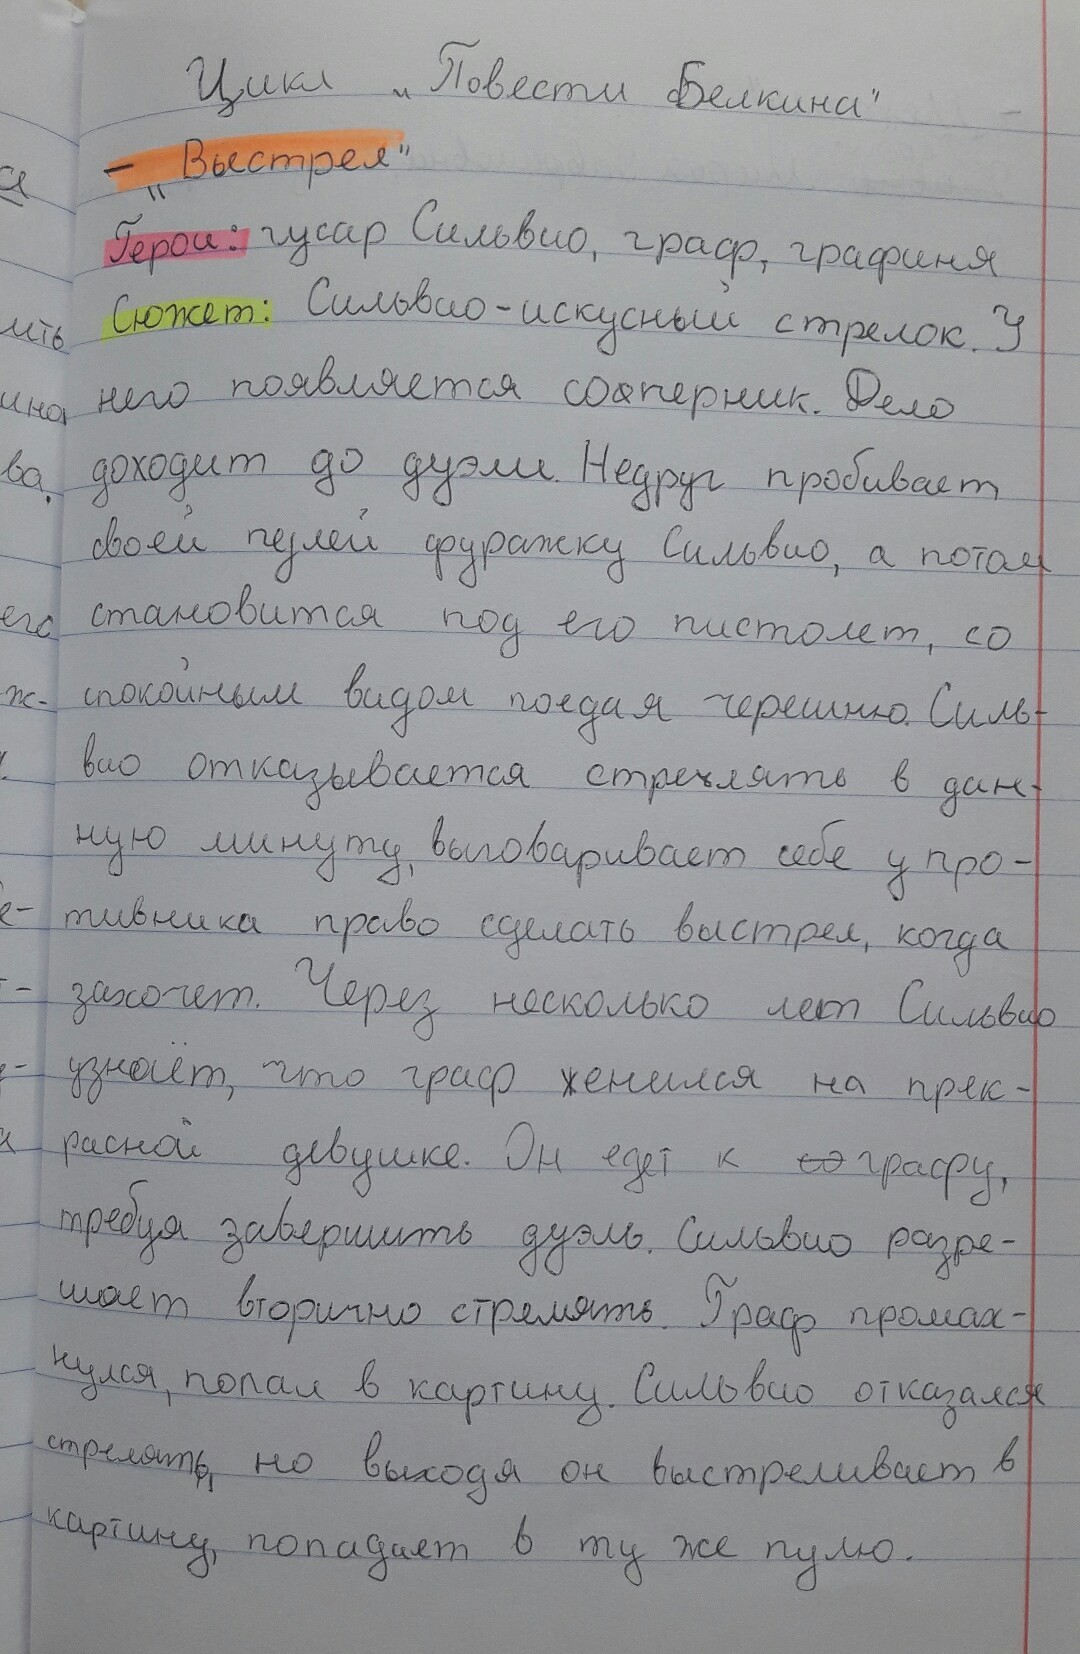 Цикл „Повести Белкина"
- „Выстрел"
Герои: гусар Сильвио, граф, графиня
Сюжет: Сильвио-искусный стрелок. У
него появляется соперник. Дело
доходит до дуэли. Недруг пробивает
своей пулей фуражку Сильвио, а потом
становится под его пистолет, со
спокойным видом поедая черешню. Силь-
вио отказывается стрелять в дан-
ную минуту, выговаривает себе у про-
тивника право сделать выстрел, когда
захочет. Через несколько лет Сильвио
узнаёт, что граф женился на прек-
расной девушке. Он едет к графу,
требуя завершить дуэль. Сильвио разре-
шает вторично стрелять. Граф промах-
нулся, попал в картину. Сильвио отказался
стрелять, но выходя он выстреливает в
картину, попадает в ту же пулю.